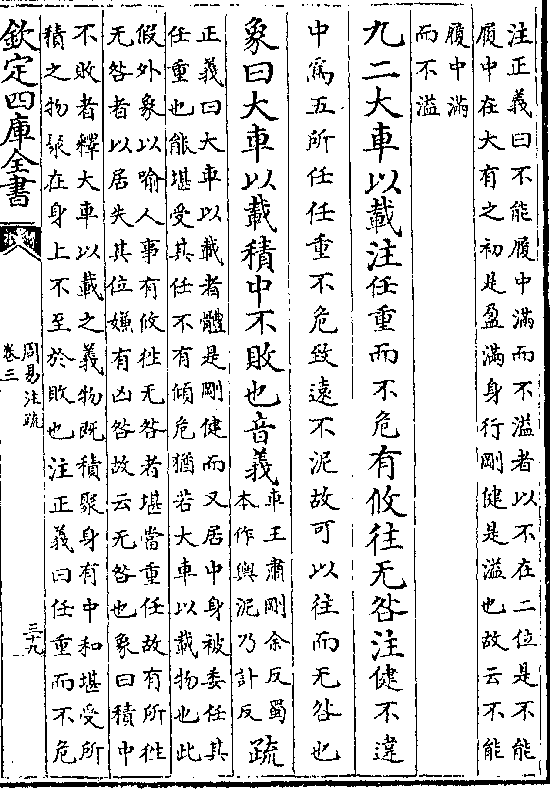 注正義曰不能履中滿而不溢者以不在二位是不能
履中在大有之初是盈滿身行剛健是溢也故云不能
履中滿
而不溢
九二大車以載注任重而不危有攸往无咎注健不違
中為五所任任重不危致遠不泥故可以往而无咎也
象曰大車以載積中不敗也音義車王肅剛余反蜀本作輿泥乃計反疏
正義曰大車以載者體是剛健而又居中身被委任其
任重也能堪受其任不有傾危猶若大車以載物也此
假外象以喻人事有攸往无咎者堪當重任故有所往
无咎者以居失其位嫌有凶咎故云无咎也象曰積中
不敗者釋大車以載之義物既積聚身有中和堪受所
積之物聚在身上不至於敗也注正義曰任重而不危
欽定四庫全書
周易注疏
卷三
三十九